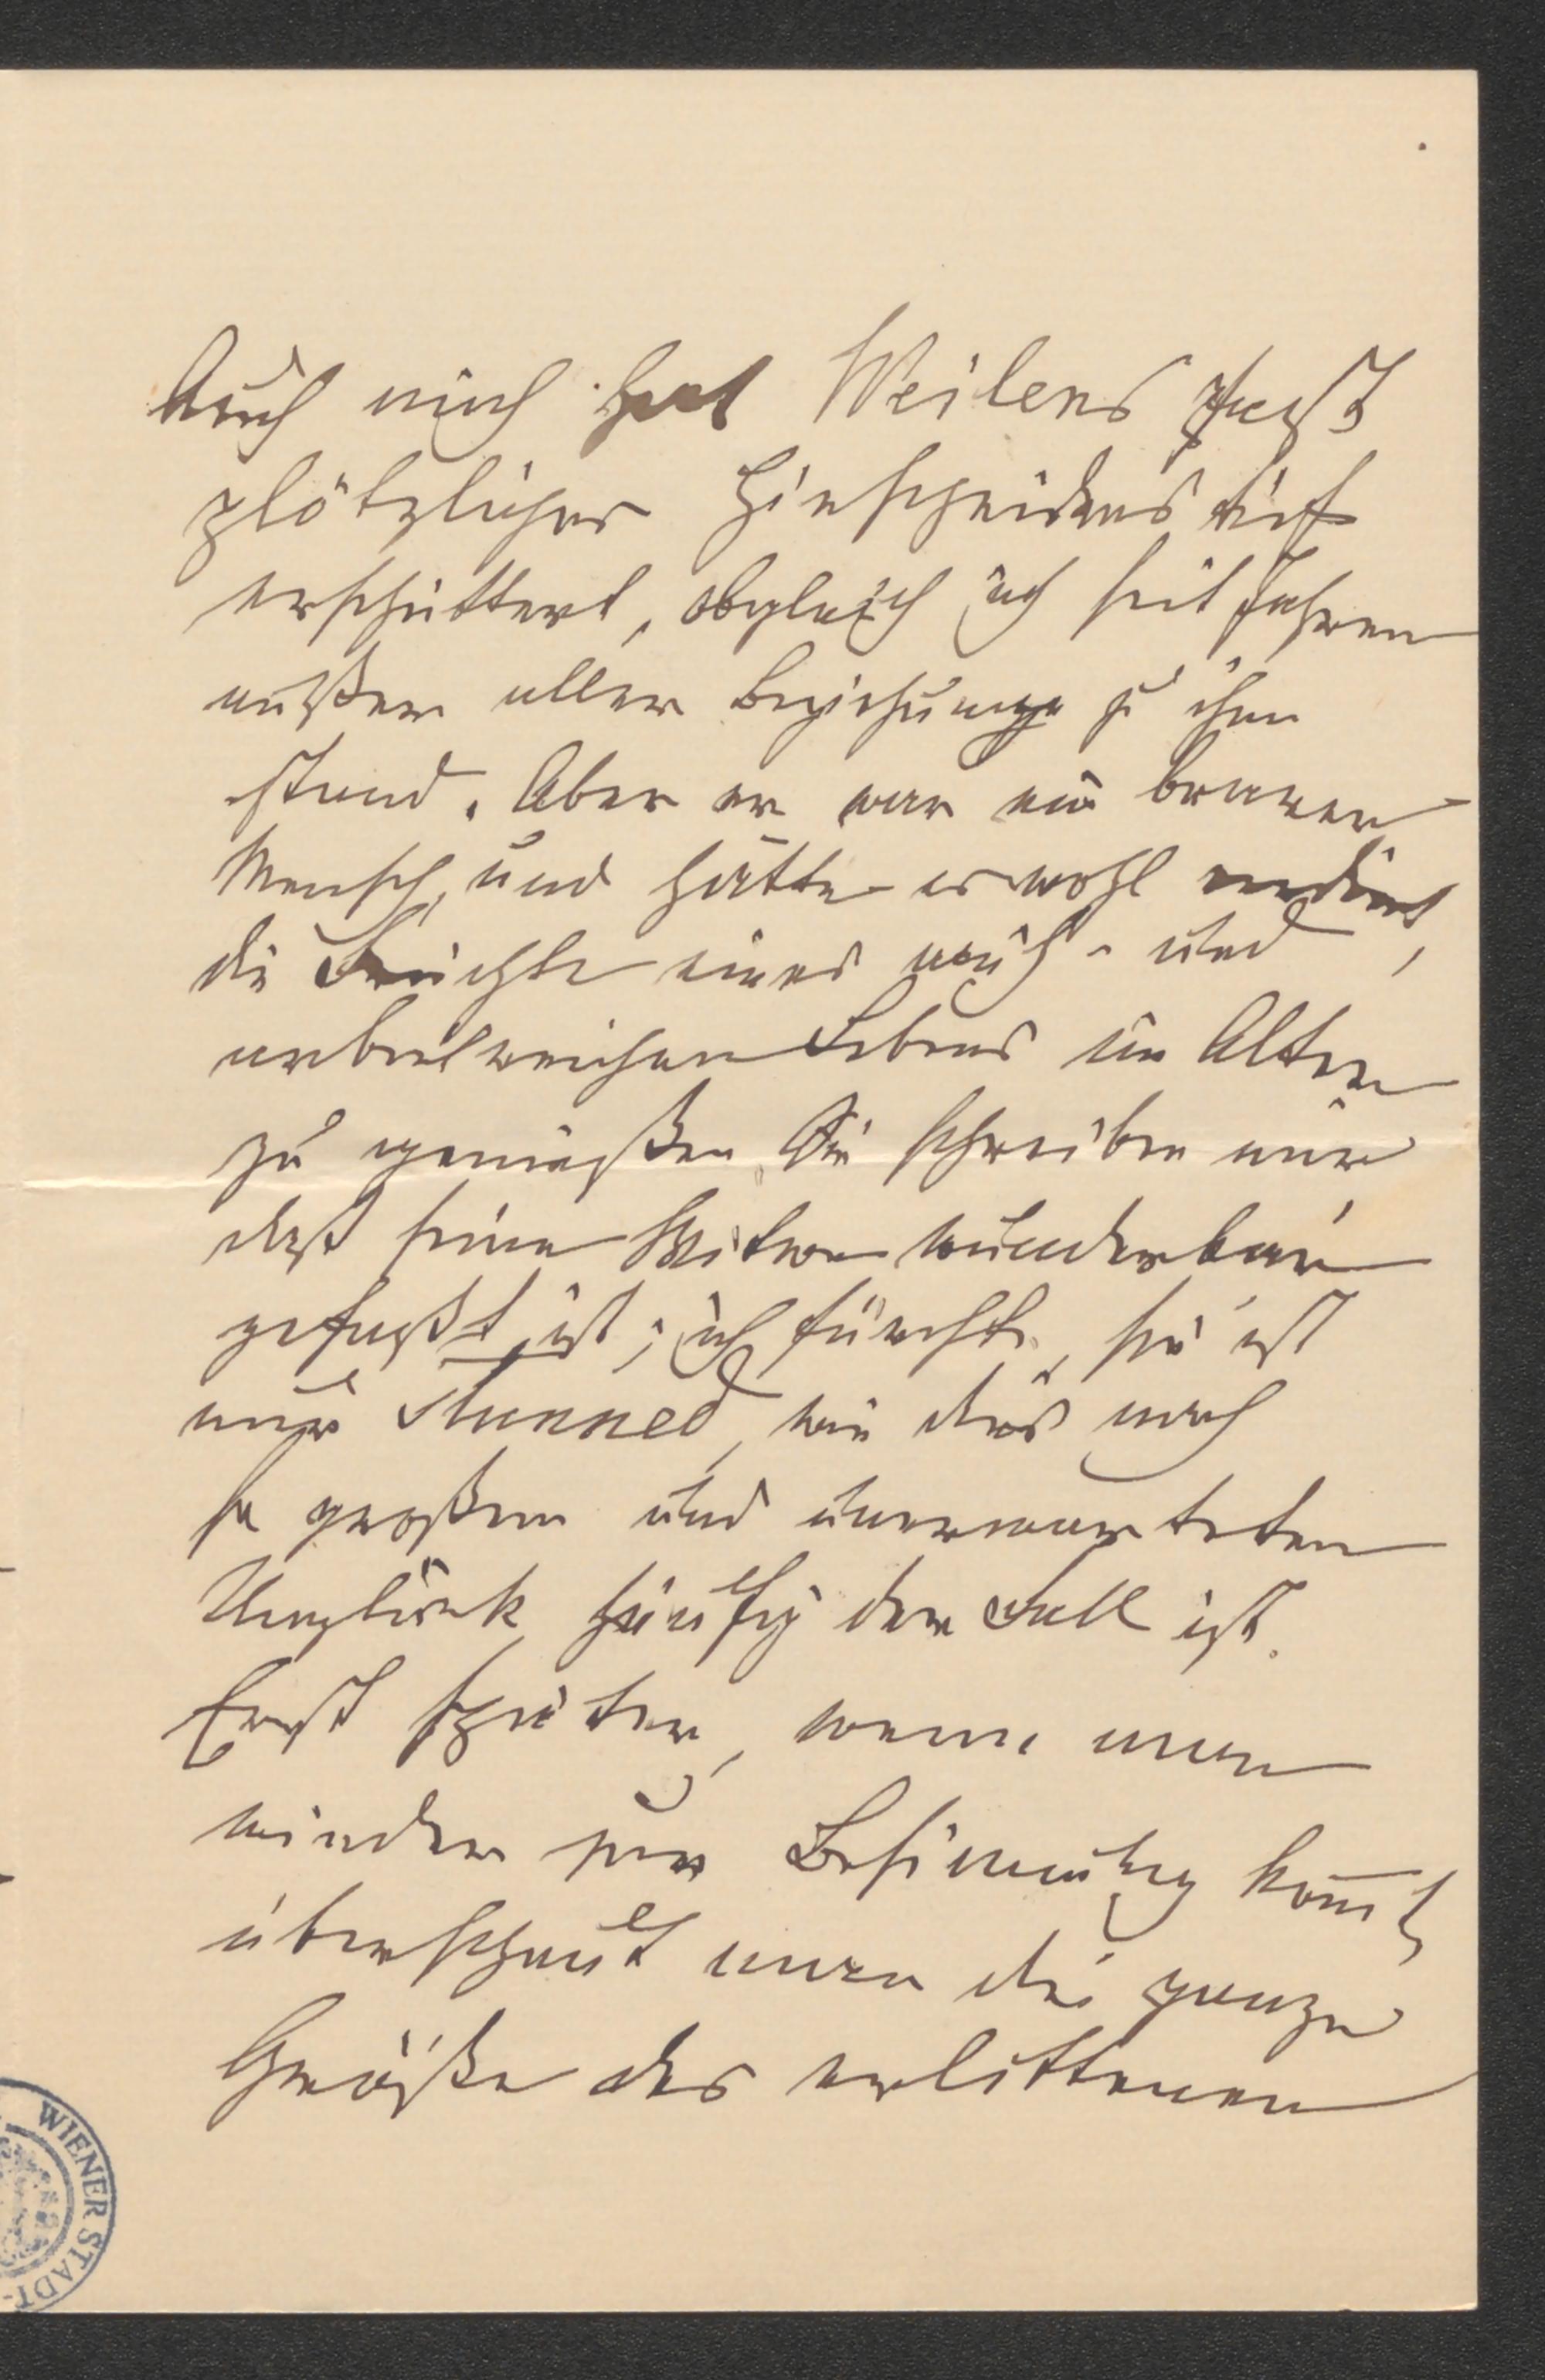 Auch mich hat Weilens fast
plötzliches Hinscheiden tief
erschüttert, obgleich ich seit Jahren
außer aller Beziehung zu ihm
stand. Aber er war ein braver
Mensch, und hätte es wohl verdient,
die Früchte eines müh- und
arbeitreichen Lebens im Alter
zu genießen. Sie schreiben mir
daß seine Witwe wunderbar
gefaßt ist; ich fürchte, sie ist
nur stunned, wie dies nach
so großem und unerwarteten
Unglück häufig der Fall ist.
Erst später, wenn man
wieder zur Besinnung kom̄t,
überschaut man die ganze
Größe des erlittenen
WIENER STADT-